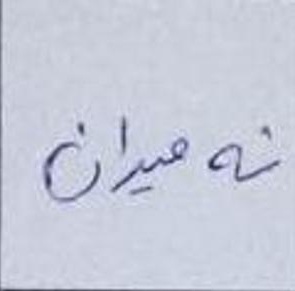 نه میدان